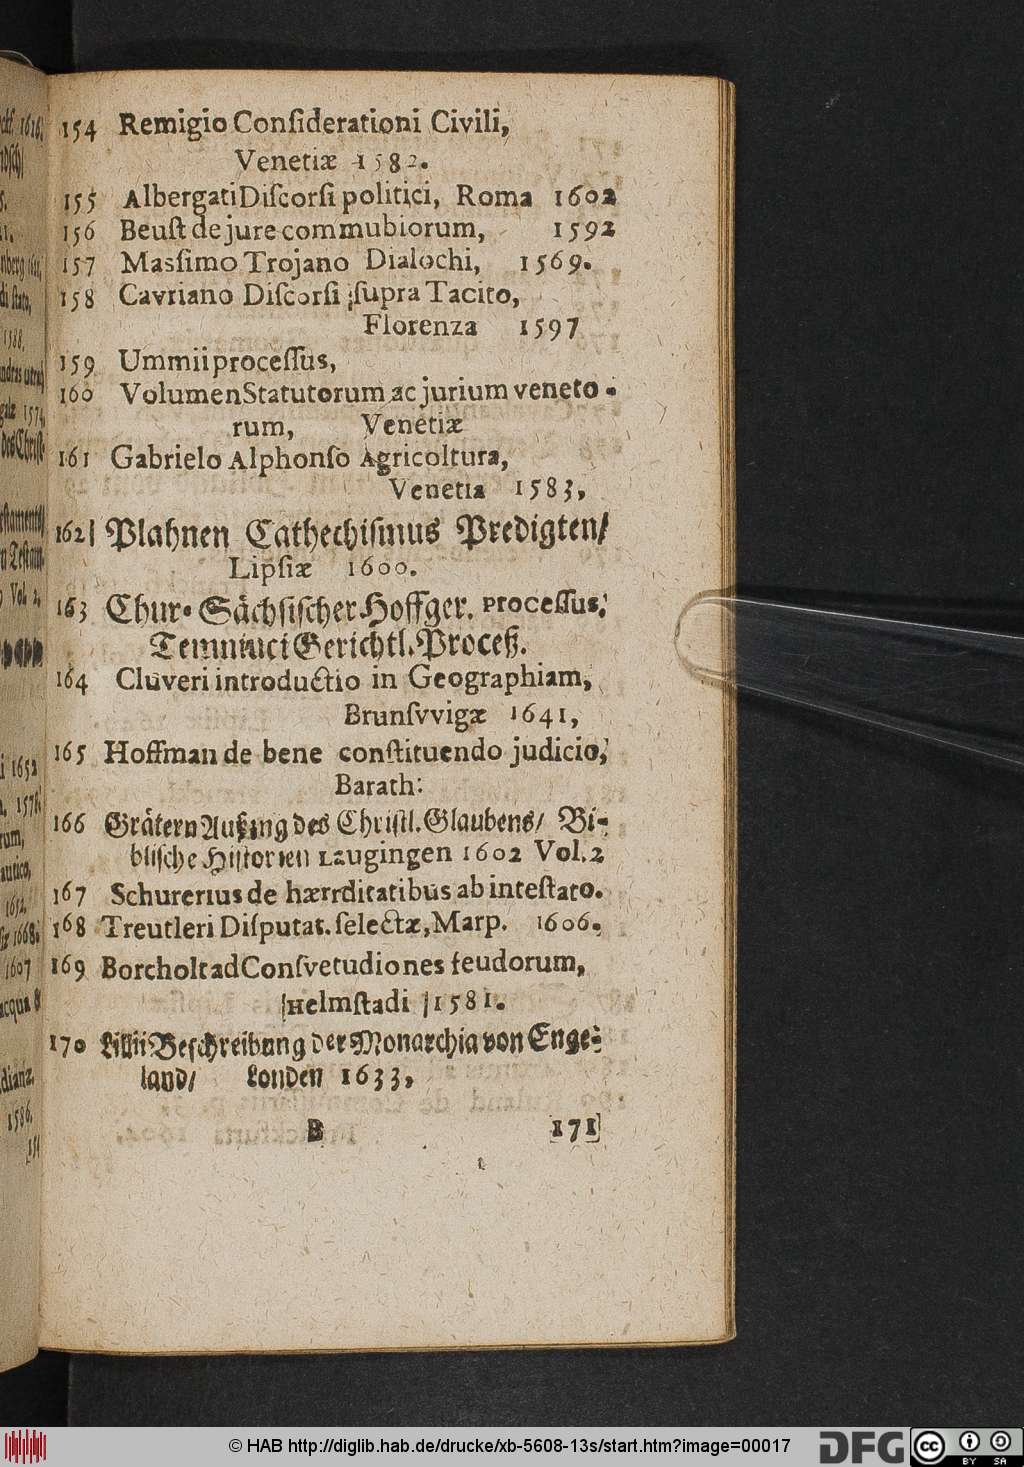 154 Remigio Conſiderationi Civili,
Venetiæ 1582.
155 Albergati Diſcorſi politici, Roma 1602
156 Beuſt de jure commubiorum, 1592
157 Masſimo Trojano Dialochi, 1569.
158 Cavriano Diſcorſi ſupra Tacito,
Florenza 1597
159 Ummii proceſſus,
160 Volumen Statutorum ac jurium veneto-
rum, Venetiæ
161 Gabrielo Alphonſo Agricoltura,
Venetia 1583,
162 Plahnen Cathechiſmus Predigten/
Lipſiæ 1600.
163 Chur-Sächſiſcher Hoffger. Proceſſus,
Gerichtl. Proceß.
164 Cluveri introductio in Geographiam,
Brunſvvigæ 1641,
165 Hoffman de bene conſtituendo judicio,
Barath:
166 Grätern Außzug des Chriſtl. Glaubens/ Bi-
bliſche Hiſtorien Laugingen 1602 Vol. 2
167 Schurerius de hærrditatibus ab inteſtato.
168 Treutleri Diſputat. ſelectæ, Marp. 1606.
169 Borcholt ad Conſvetudiones feudorum,
Helmſtadi 1581.
170 Lillii Beſchreibung der Monarchia von Enge-
land/ Londen 1633,
B 171
© HAB http://diglib.hab.de/drucke/xb-5608-13s/start.htm?image=00017
DFG cc BY SA